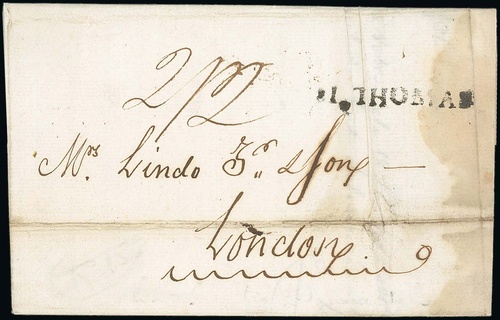 2/2
St. THOMAS
Mrs. Lindo & Son
London